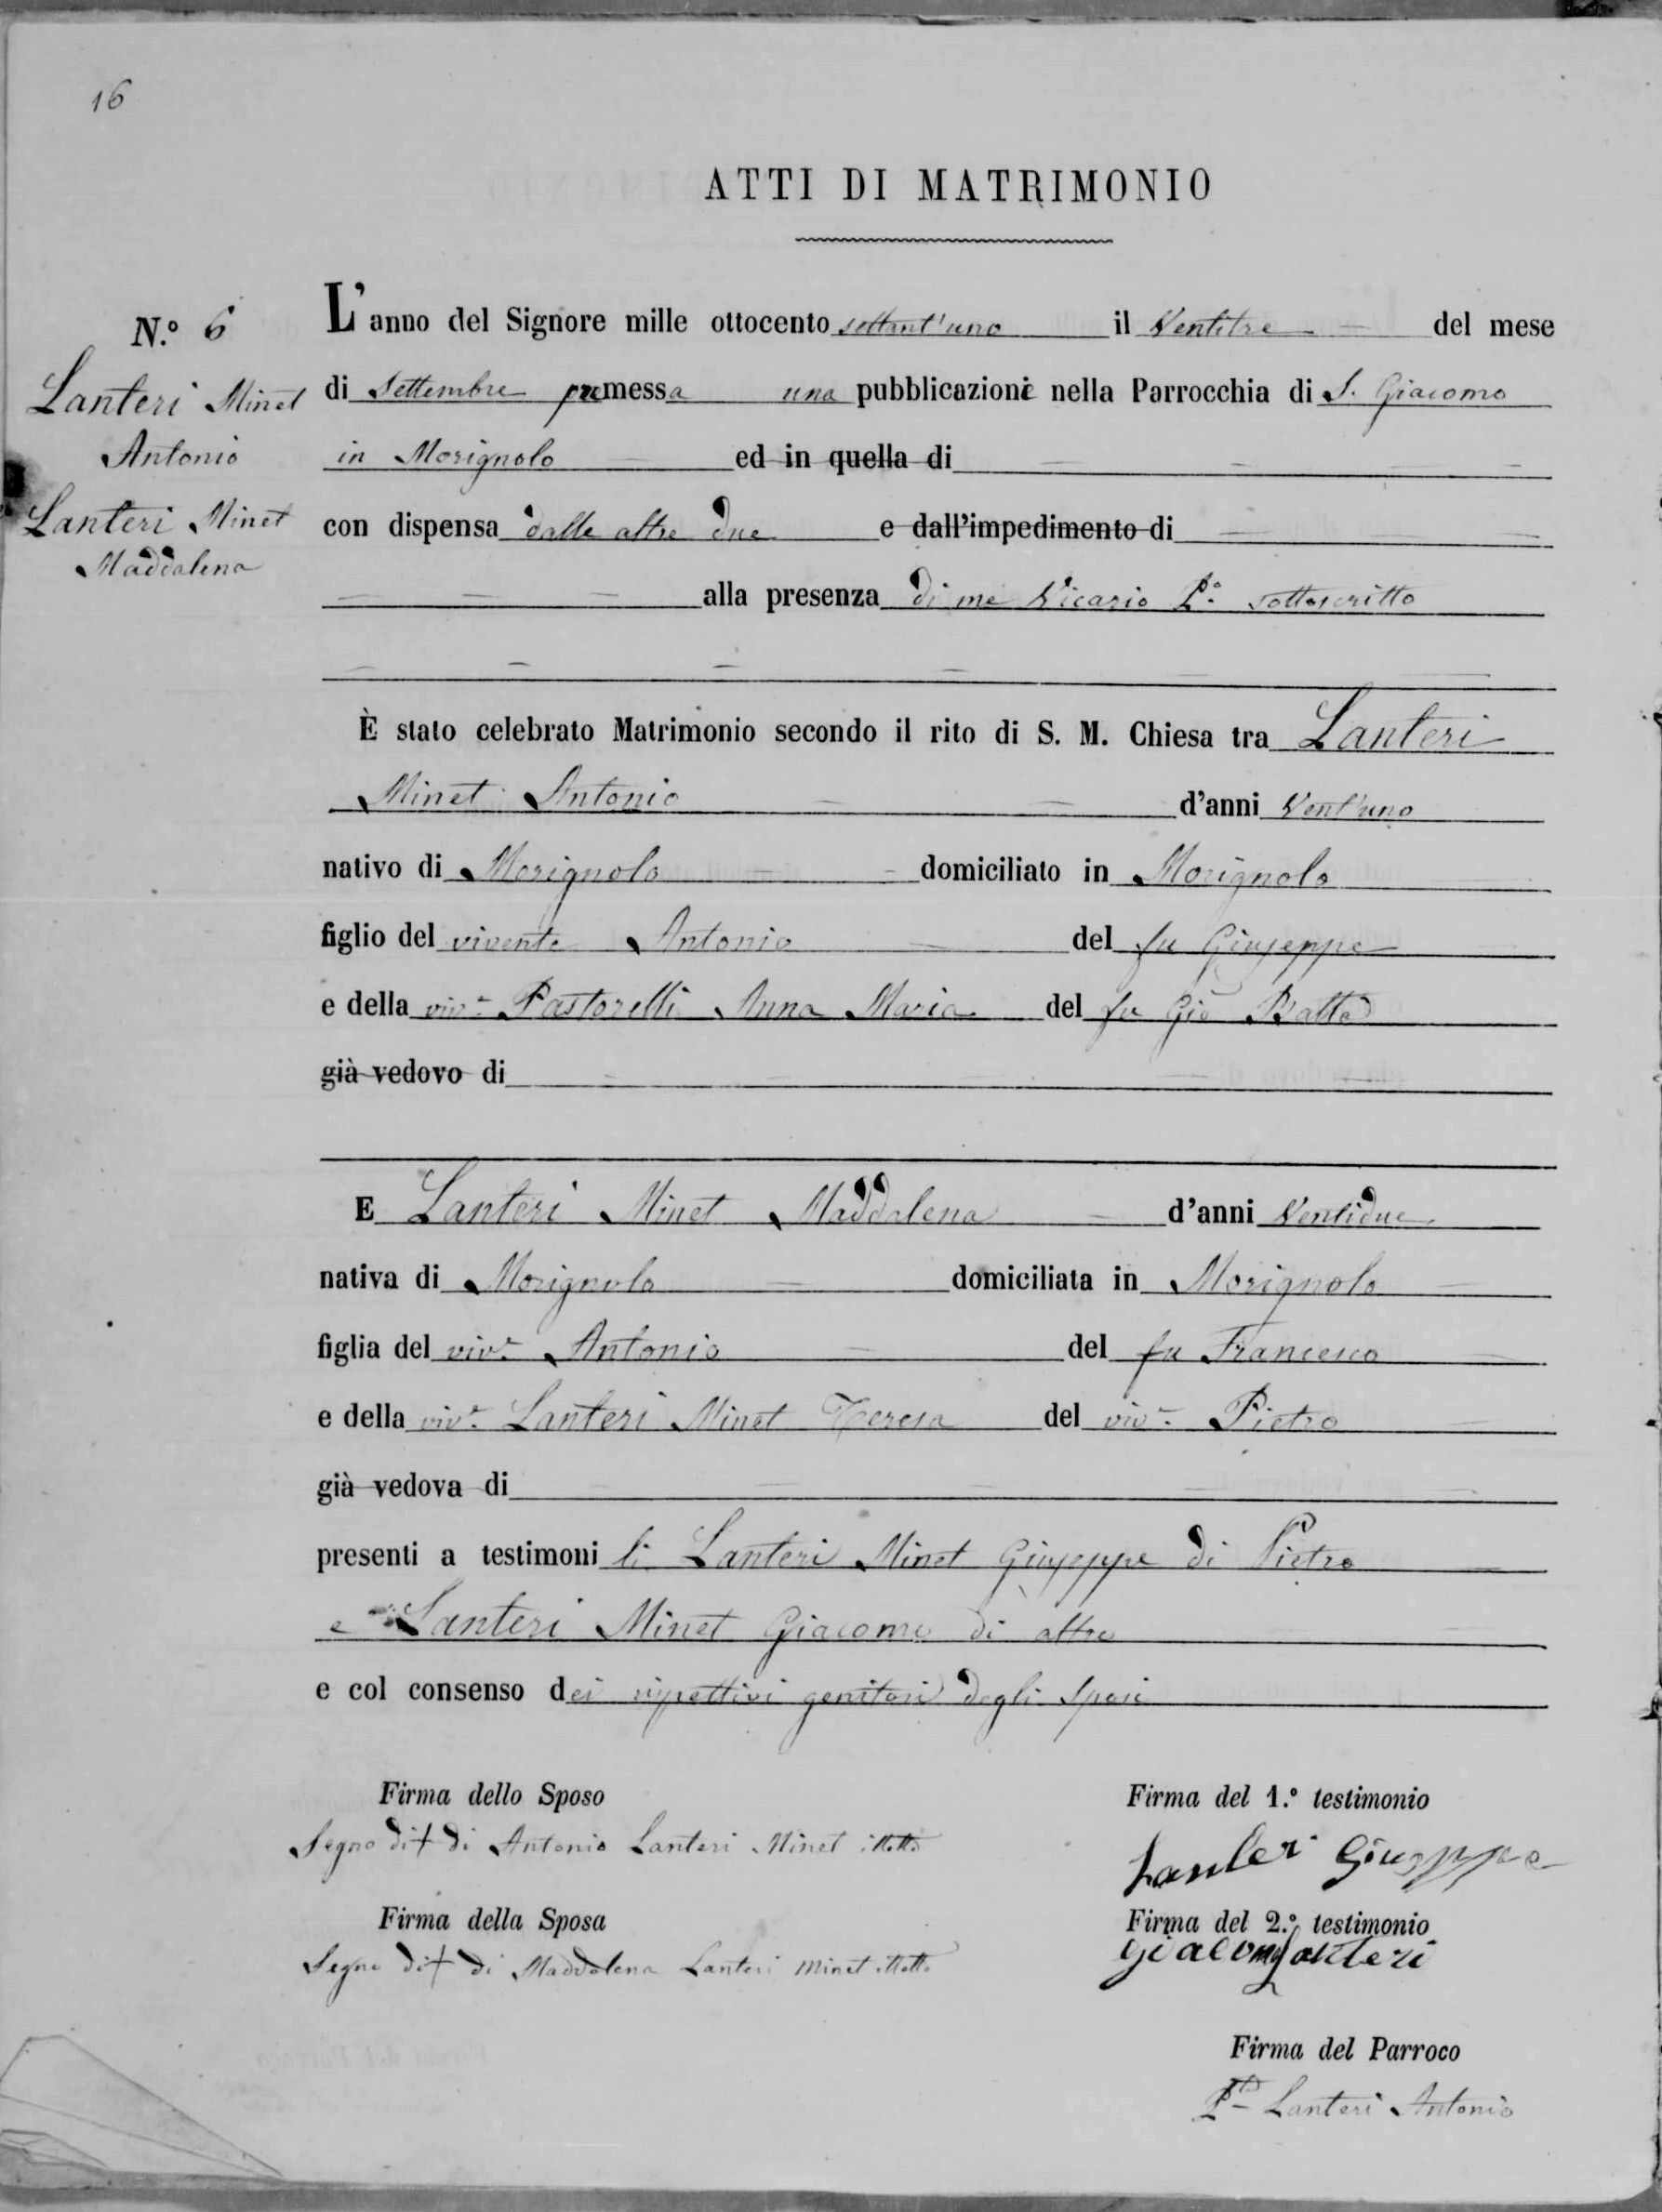 16
ATTI DI MATRIMONIO
N.º 6
Lanteri Minet
Antonio
Lanteri Minet
Maddalena
L'anno del Signore mille ottocento settant'uno il Ventitre del mese
di Settembre premessa una pubblicazione nella Parrocchia di S. Giacomo
in Morignolo ed in quella di
con dispensa dalle altre due e dall'impedimento di
alla presenza di me Vicario P.º sottoscritto
È stato celebrato Matrimonio secondo il rito di S. M. Chiesa tra Lanteri
Minet Antonio d'anni Vent'uno
nativo di Morignolo domiciliato in Morignolo
figlio del vivente Antonio del fu Giuseppe
e della viv.e Pastorelli Anna Maria del fu Gio Batta
già vedovo di
E Lanteri Minet Maddalena d'anni Ventidue
nativa di Morignolo domiciliata in Morignolo
figlia del viv.e Antonio del fu Francesco
e della viv.e Lanteri Minet Teresa del viv.e Pietro
già vedova di
presenti a testimoni li Lanteri Minet Giuseppe di Pietro
e Lanteri Minet Giacomo di altro
e col consenso dei rispettivi genitori degli Sposi
Firma dello Sposo
Segno di + di Antonio Lanteri Minet illett.o
Firma della Sposa
Segno di + di Maddalena Lanteri Minet illett.a
Firma del 1.º testimonio
Lanteri Giuseppe
Firma del 2.º testimonio
Giacomo Lanteri
Firma del Parroco
P.te Lanteri Antonio